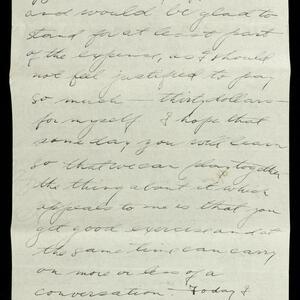 and would be glad to
stand for at least part
of the expense, as I should
not feel justified to pay
so much — thirty dollars —
for myself. I hope that
some day you will learn
so that we can play together
the thing about it which
appeals to me is that you
get good exercise and at
the same time can carry
on more or less of a
conversation — Today I